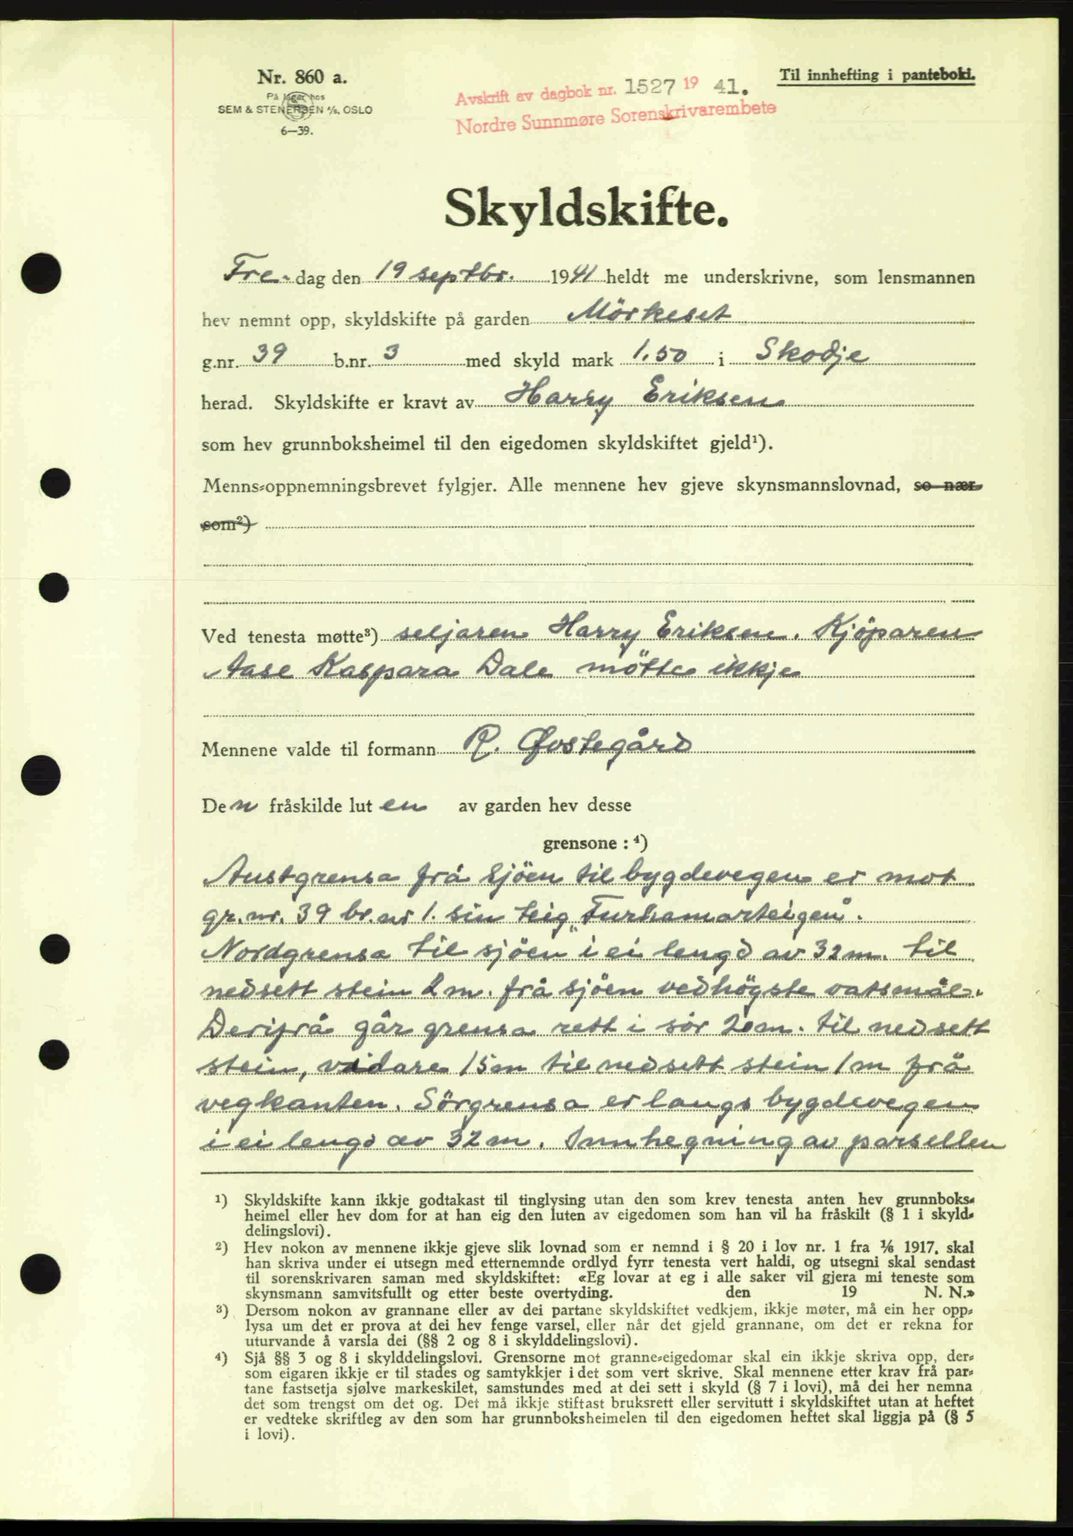 Nr. 860 a.
På lager hos
SEM & STENERSEN A/S, OSLO
6—39.
Til innhefting i panteboki.
Avskrift av dagbok nr. 1527 19 41.
Nordre Sunnmøre Sorenskrivarembete
Skyldskifte.
Fre-dag den 19 septbr. 1941 heldt me underskrivne, som lensmannen
hev nemnt opp, skyldskifte på garden Mörkeset
g.nr. 39 b.nr. 3 med skyld mark 1.50 i Skodje
herad. Skyldskifte er kravt av Harry Eriksen
som hev grunnboksheimel til den eigedomen skyldskiftet gjeld¹).
Menns-oppnemningsbrevet fylgjer. Alle mennene hev gjeve skynsmannslovnad, so nær
som²)
Ved tenesta møtte³) seljaren Harry Eriksen. Kjöparen
Aase Kaspara Dale mötte ikkje
Mennene valde til formann R. Øvstegård
Den fråskilde luten av garden hev desse
grensone: ⁴)
Austgrensa frå sjöen til bygdevegen er mot
gr. nr. 39 br. nr 1. sin teig „Furhamarteigen".
Nordgrensa til sjöen i ei lengd av 32 m. til
nedsett stein 2 m. frå sjöen ved högste vatsmål.
Derifrå går grensa rett i sör 20 m. til nedsett
stein, vidare 15 m til nedsett stein 1 m frå
vegkanten. Sörgrensa er langs bygdevegen
i ei lengd av 32 m. Innhegning av parsellen
¹) Skyldskifte kann ikkje godtakast til tinglysing utan den som krev tenesta anten hev grunnboks-
heimel eller hev dom for at han eig den luten av eigedomen som han vil ha fråskilt (§ 1 i skyld-
delingslovi).
²) Hev nokon av mennene ikkje gjeve slik lovnad som er nemnd i § 20 i lov nr. 1 fra 1/6 1917, skal
han skriva under ei utsegn med etternemnde ordlyd fyrr tenesta vert haldi, og utsegni skal sendast
til sorenskrivaren saman med skyldskiftet: «Eg lovar at eg i alle saker vil gjera mi teneste som
skynsmann samvitsfullt og etter beste overtyding. den 19 N. N.»
³) Dersom nokon av grannane eller av dei partane skyldskiftet vedkjem, ikkje møter, må ein her opp-
lysa um det er prova at dei hev fenge varsel, eller når det gjeld grannane, om det er rekna for
uturvande å varsla dei (§§ 2 og 8 i skylddelingslovi).
⁴) Sjå §§ 3 og 8 i skylddelingslovi. Grensorne mot granne-eigedomar skal ein ikkje skriva opp, der-
som eigaren ikkje er til stades og samtykkjer i det som vert skrive. Skal mennene etter krav frå par-
tane fastsetja sjølve markeskilet, samstundes med at dei sett i skyld (§ 7 i lovi), må dei her nemna
det som trengst om det og. Det må ikkje stiftast bruksrett eller servitutt i skyldskiftet utan at heftet
er vedteke skriftleg av den som har grunnboksheimelen til den eigedomen heftet skal liggja på (§ 5
i lovi).